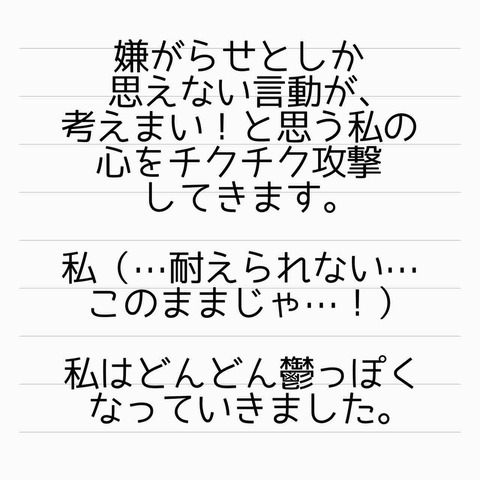 嫌がらせとしか
思えない言動が、
考えまい！と思う私の
心をチクチク攻撃
してきます。
私（…耐えられない…
このままじゃ…！）
私はどんどん鬱っぽく
なっていきました。